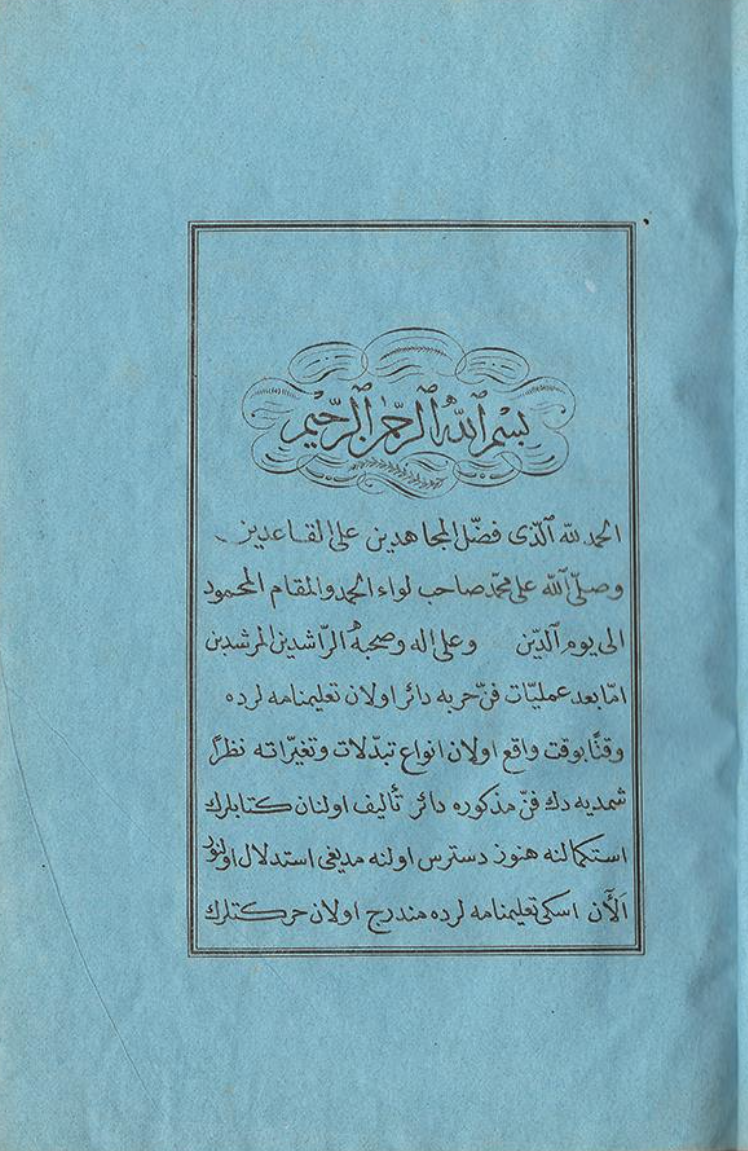 بِسْمِ ٱللّٰهِ ٱلرَّحْمٰنِ ٱلرَّحِيمِ
الحمد لله ٱلّذى فضّل المجاهدين على القاعدين
وصلّى ٱلله على محمّد صاحب لواء الحمد والمقام المحمود
الى يوم ٱلدّين وعلى اله وصحبه الرّاشدين المرشدين
امّا بعد عمليّات فنّ حربه دائر اولان تعليمنامه لرده
وقتًا بوقت واقع اولان انواع تبدّلات وتغيّراته نظرًا
شمديه دك فنّ مذكوره دائر تأليف اولنان كتابلرك
استكمالنه هنوز دسترس اولنه مديغى استدلال اولنور
اَلْآن اسكى تعليمنامه لرده مندرج اولان حركتلرك